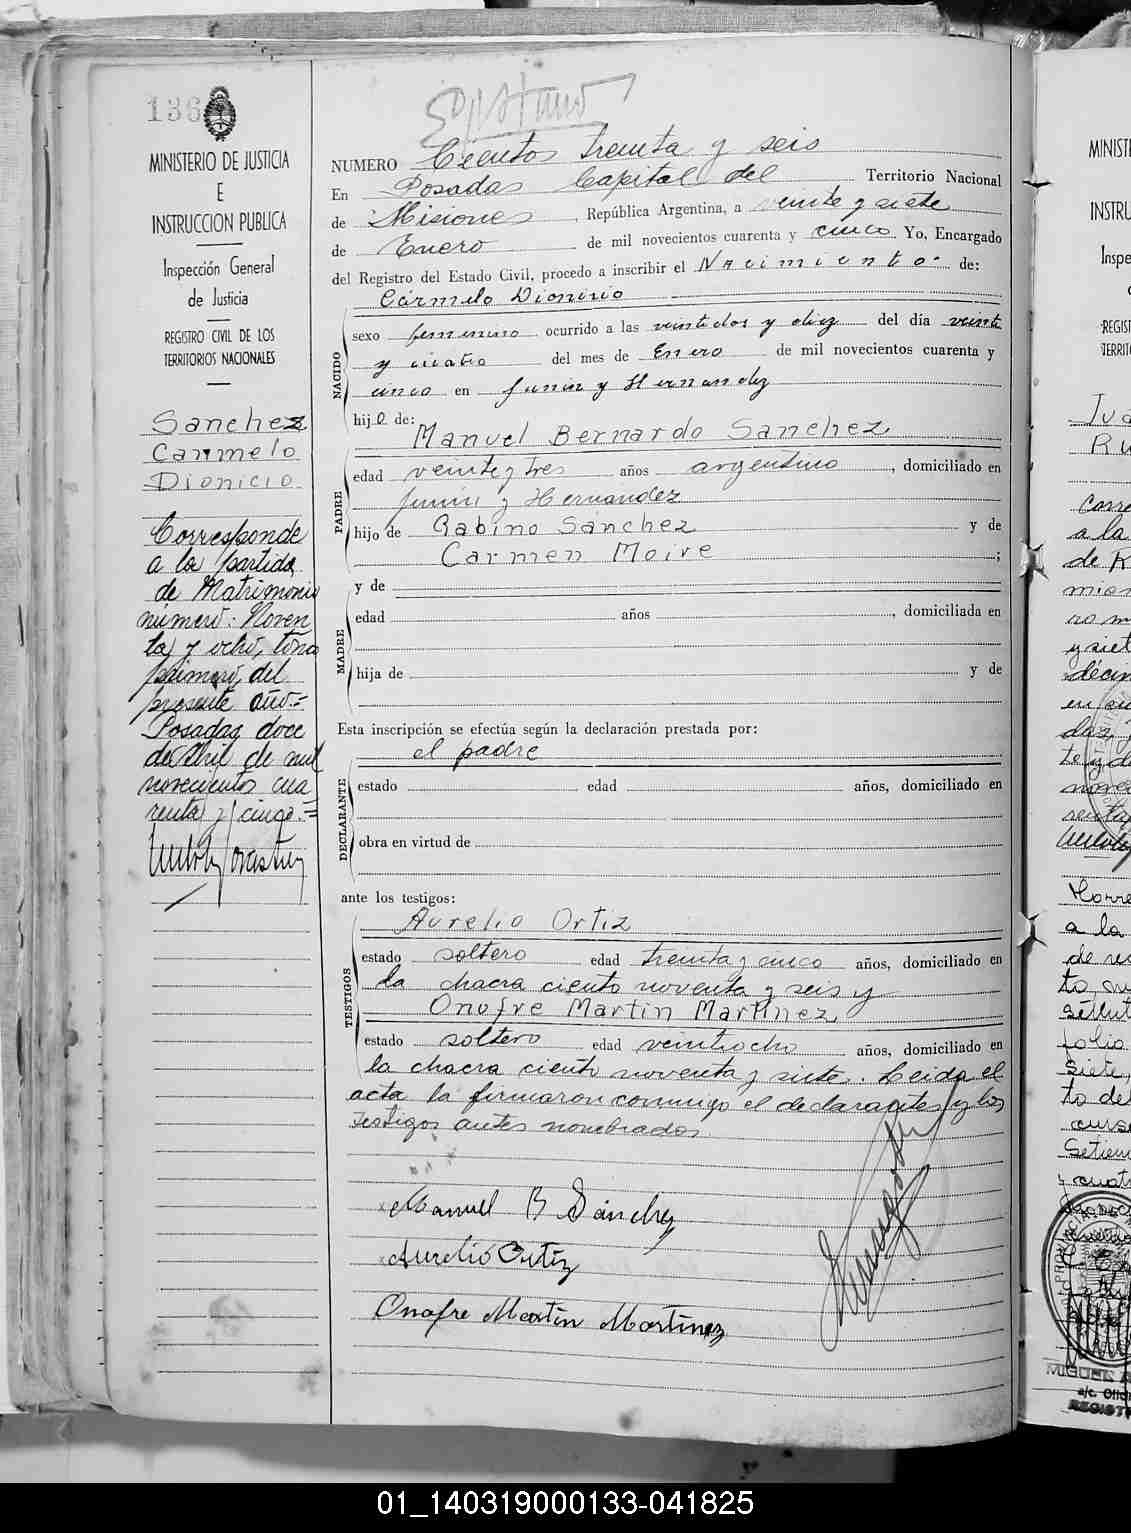 136
MINISTERIO DE JUSTICIA
E
INSTRUCCION PUBLICA
Inspección General
de Justicia
REGISTRO CIVIL DE LOS
TERRITORIOS NACIONALES
Sanchez
Carmelo
Dionicio
Corresponde
a la partida
de Matrimonio
número: Noven
ta y ocho, tomo
primero, del
presente año.=
Posadas, doce
de Abril de mil
novecientos cua
renta y cinco.=
NUMERO Ciento treinta y seis
En Posadas Capital del Territorio Nacional
de Misiones, República Argentina, a veinte y siete
de Enero de mil novecientos cuarenta y cinco Yo, Encargado
del Registro del Estado Civil, procedo a inscribir el Nacimiento de:
Cármelo Dionisio
NACIDO
sexo femenino ocurrido a las veintidos y diez del día veinte
y cuatro del mes de Enero de mil novecientos cuarenta y
cinco en Junin y Hernandez
hij de:
Manuel Bernardo Sanchez
PADRE
edad veinte y tres años argentino, domiciliado en
Junin y Hernandez
hijo de Gabino Sanchez y de
Carmen Moire;
MADRE
y de
edad años, domiciliada en
hija de y de
Esta inscripción se efectúa según la declaración prestada por:
el padre
DECLARANTE
estado edad años, domiciliado en
obra en virtud de
ante los testigos:
TESTIGOS
Aurelio Ortiz
estado soltero edad treinta y cinco años, domiciliado en
la chacra ciento noventa y seis y
Onofre Martin Martinez
estado soltero edad veintiocho años, domiciliado en
la chacra ciento noventa y siete. Leida el
acta la firmaron conmigo el declarante y los
testigos antes nombrados.
Manuel B Sánchez
Aurelio Ortiz
Onofre Martin Martinez
MINIST
INSTRU
Inspe
REGIST
TERRIT
Jua
Ru
a la
de R
y siet
décim
a la
Siete,
to de
Setiem
PROVINCIA
MIGUEL A
a/c. Ofici
REGIST
01_140319000133-041825